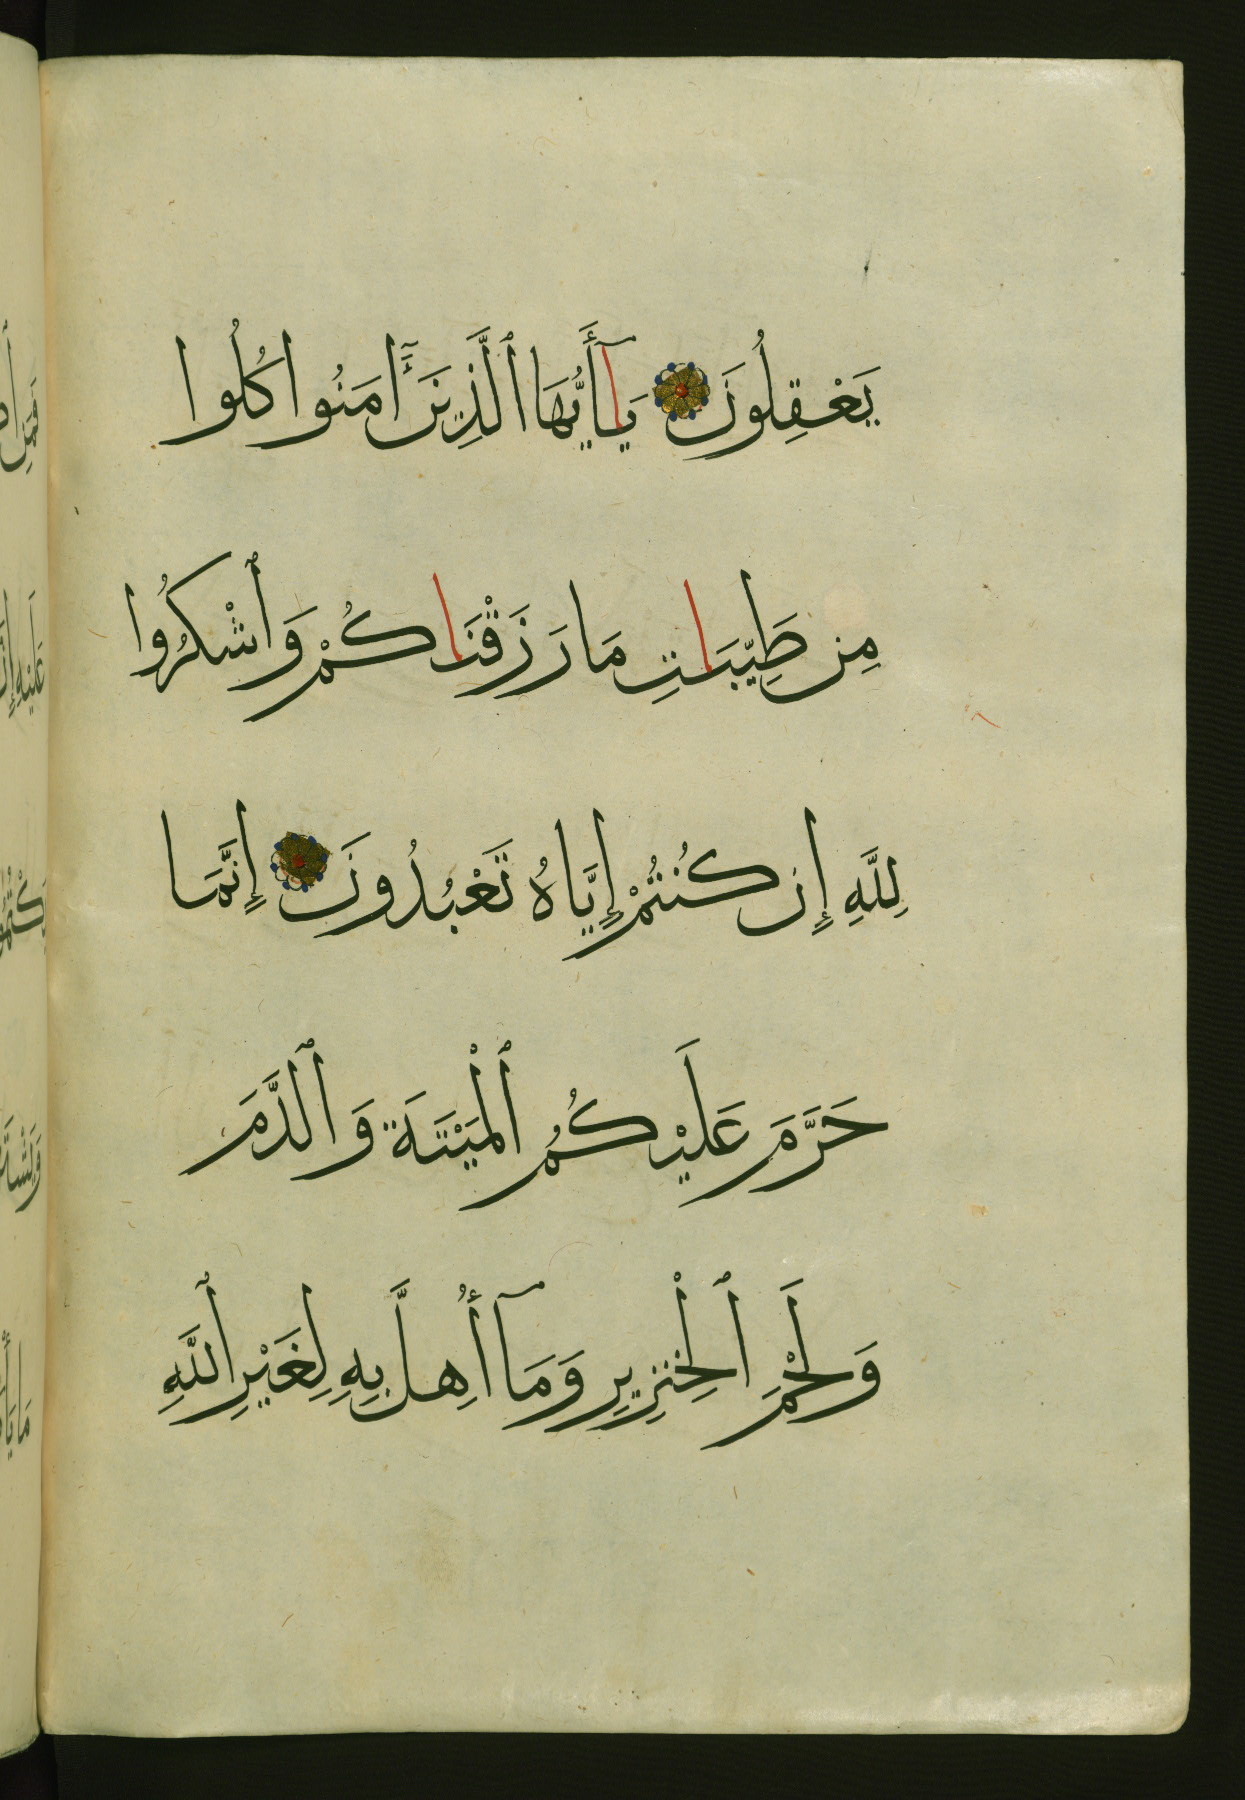 يَعْقِلُونَ يَاأَيُّهَا ٱلَّذِينَ ءَامَنُوا كُلُوا
مِن طَيِّبَاتِ مَا رَزَقْنَاكُمْ وَٱشْكُرُوا
لِلَّهِ إِن كُنتُمْ إِيَّاهُ تَعْبُدُونَ إِنَّمَا
حَرَّمَ عَلَيْكُمُ ٱلْمَيْتَةَ وَٱلدَّمَ
وَلَحْمَ ٱلْخِنزِيرِ وَمَآ أُهِلَّ بِهِ لِغَيْرِ ٱللَّهِ